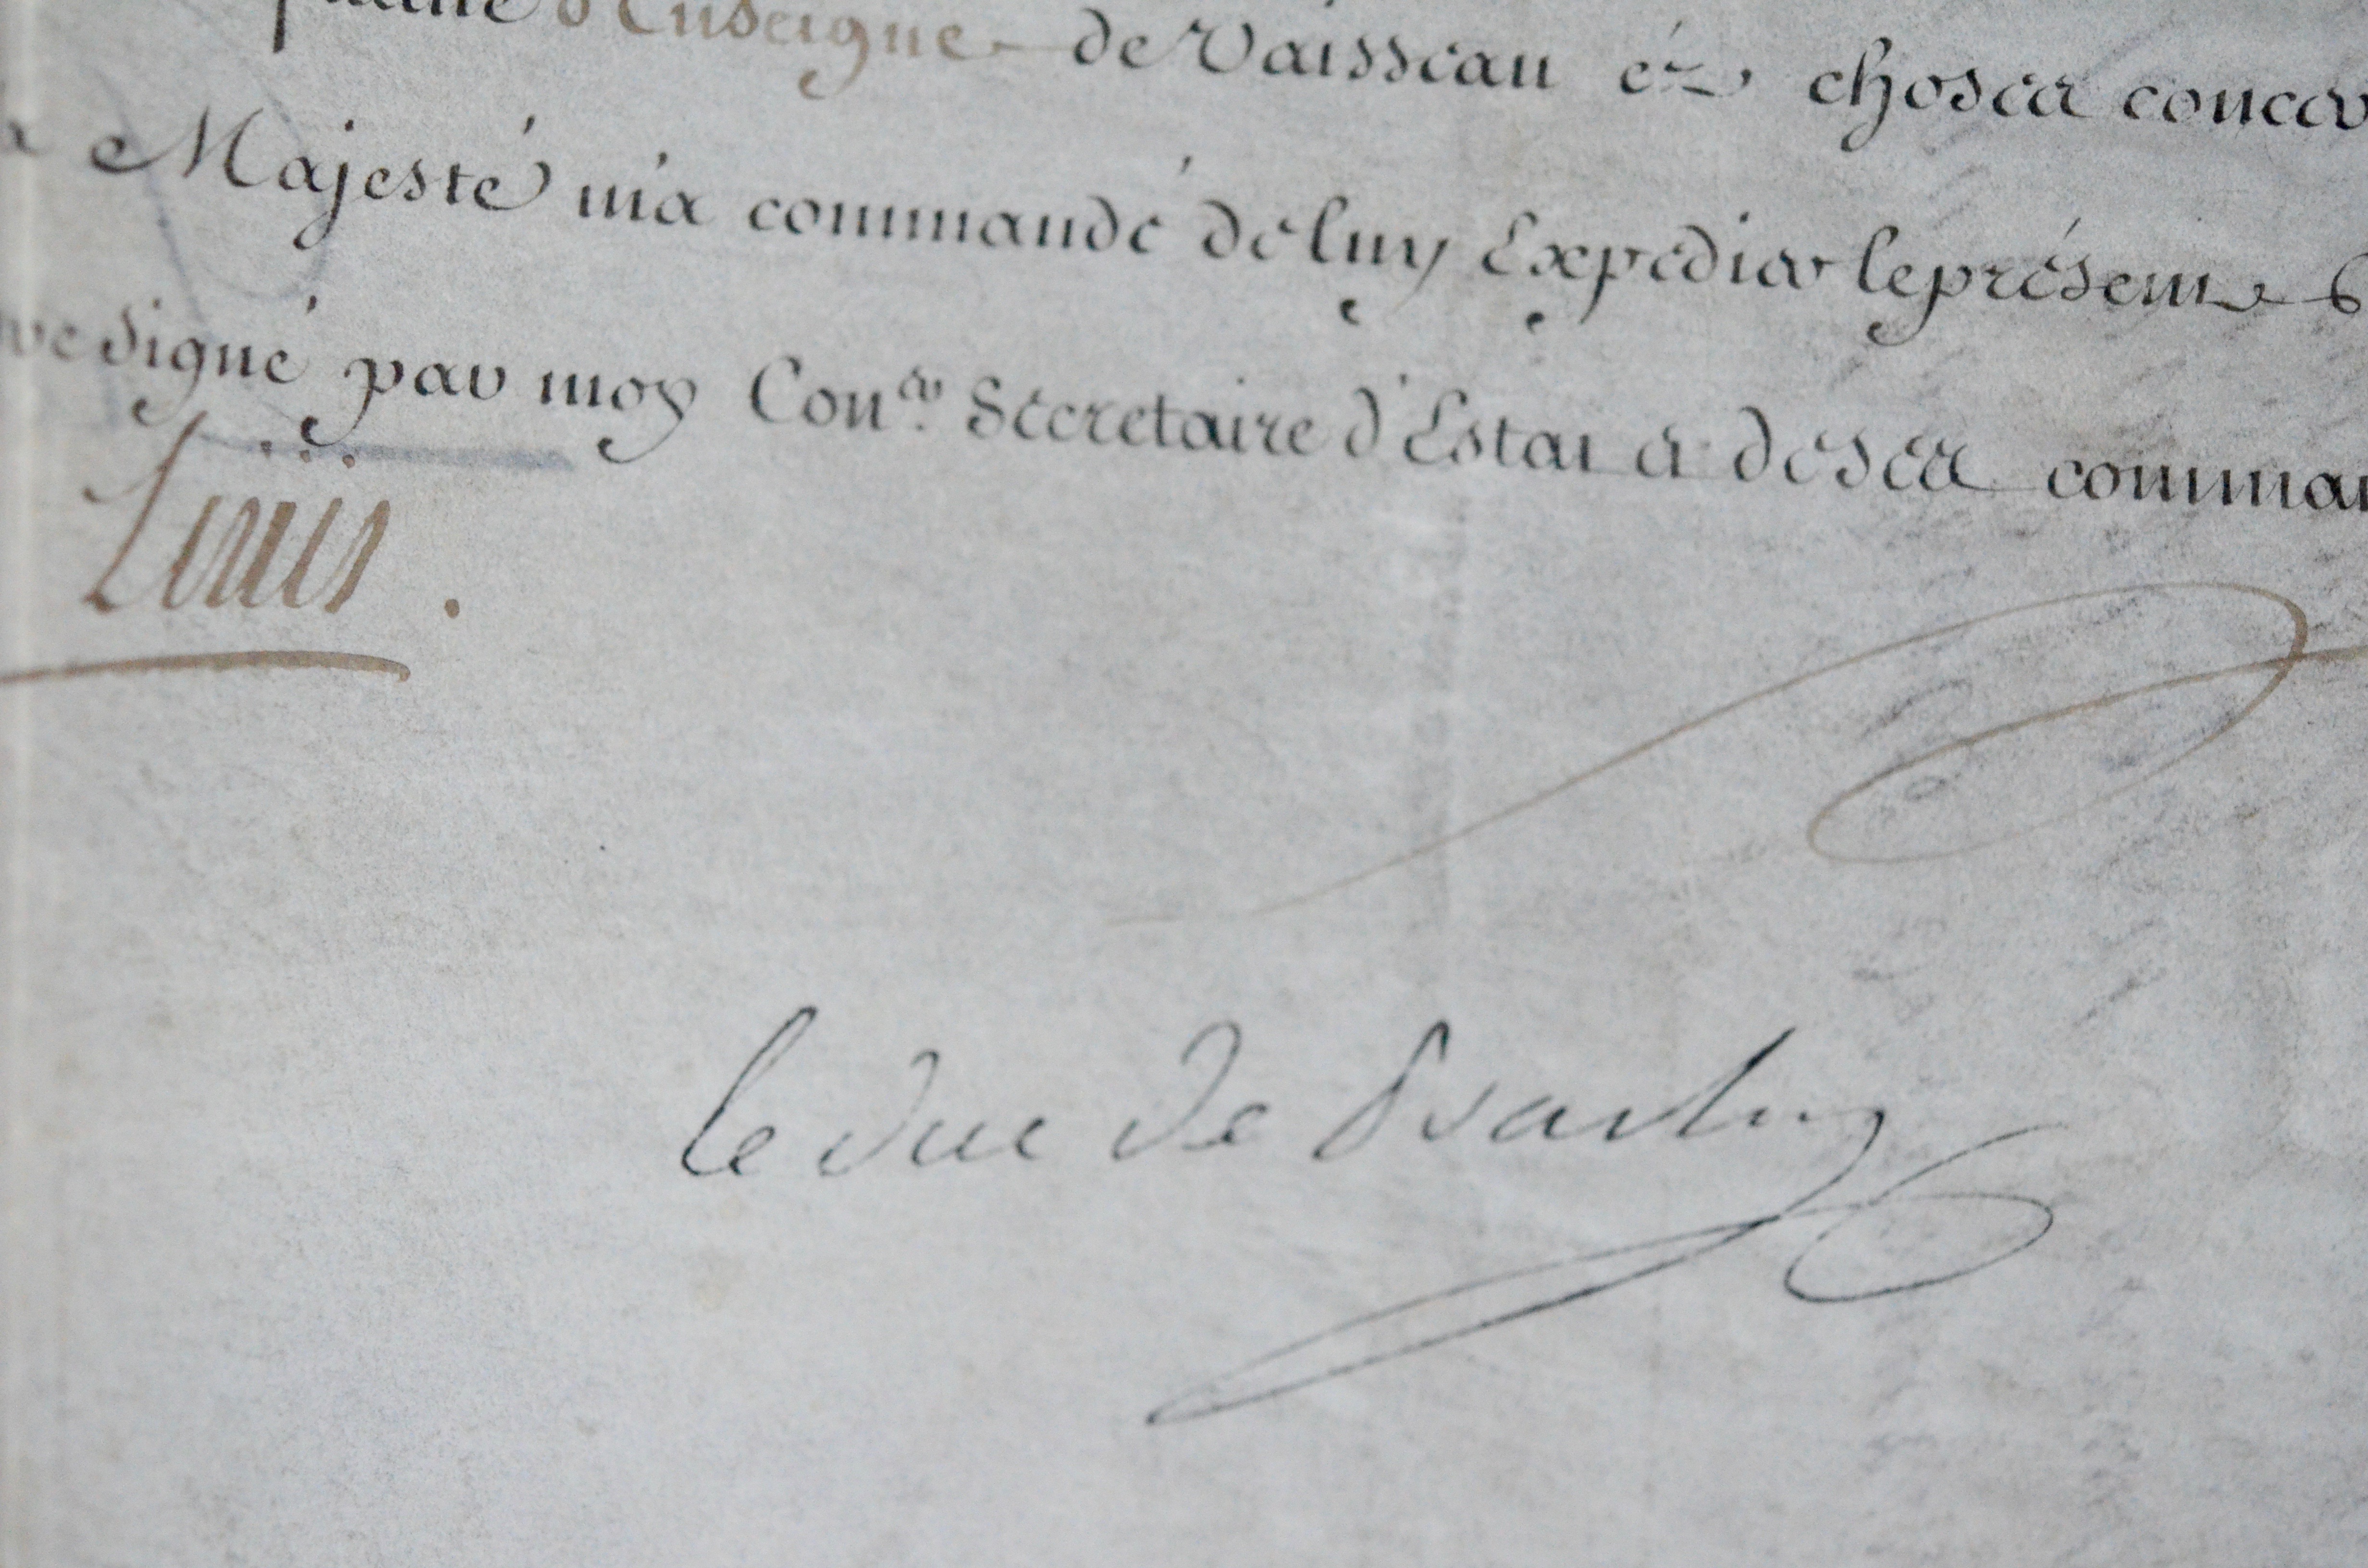 d'Enseigne de Vaisseau és choses concer
Majesté m'a commandé de luy Expédier le présent
signé par moy Con.er Sécretaire d'Estat et de ses comman
Louis.
le duc de Praslin